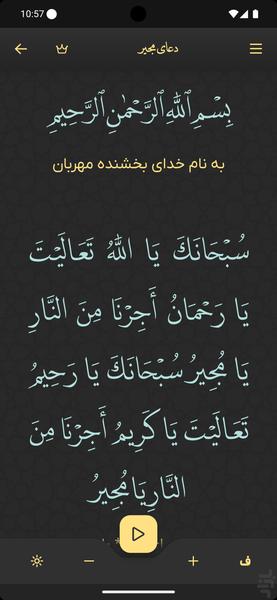 10:57
دعای مجیر
بِسْمِ ٱللَّهِ ٱلرَّحْمَٰنِ ٱلرَّحِيمِ
به نام خدای بخشنده مهربان
سُبْحَانَكَ يَا اللَّهُ تَعَالَيْتَ
يَا رَحْمَانُ أَجِرْنَا مِنَ النَّارِ
يَا مُجِيرُ سُبْحَانَكَ يَا رَحِيمُ
تَعَالَيْتَ يَا كَرِيمُ أَجِرْنَا مِنَ
النَّارِ يَا مُجِيرُ
ف
بازار